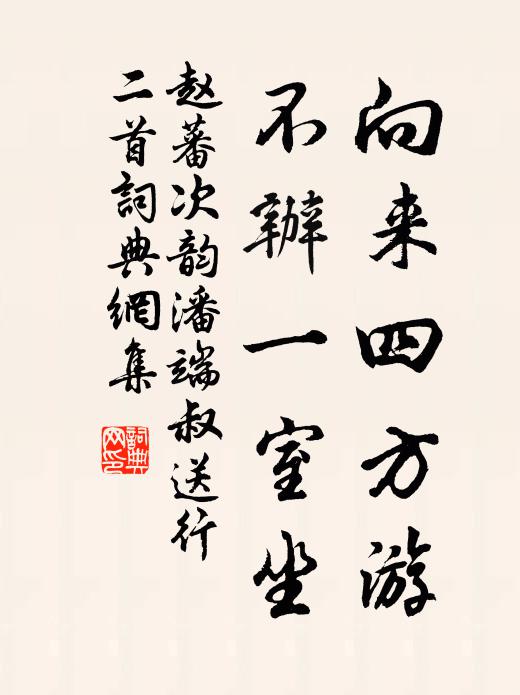 向来四方游
不辦一室坐
赵蕃次韵潘端叔送行
二首詞典網集
詞典
网印